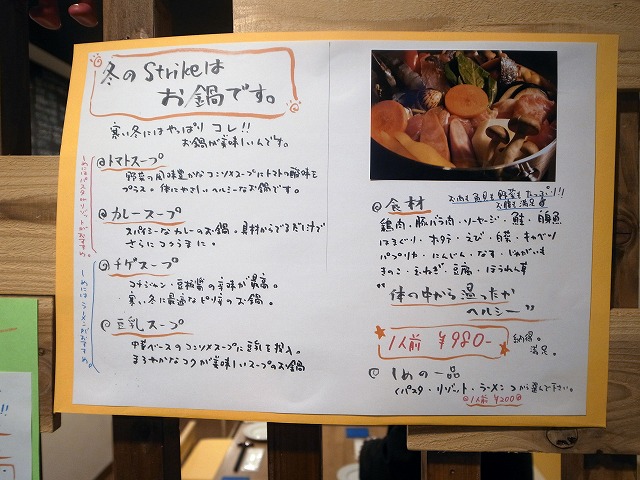 冬のStrikeは
お鍋です。
寒い冬にはやっぱりコレ!!
お鍋が美味しいんです。
トマトスープ
野菜の風味豊かなコンソメスープにトマトの酸味を
プラス。体にやさしいヘルシーなお鍋です。
カレースープ
スパイシーなカレーのお鍋。具材からでるだし汁で
さらにコクうまに。
しめにはパスタかリゾットがおすすめ。
チゲスープ
コチジャン・豆板醤の辛味が最高。
寒い冬に最高なピリ辛のお鍋。
豆乳スープ
中華ベースのコンソメスープに豆乳を投入。
まろやかなコクが美味しいスープのお鍋
しめにはラーメンがおすすめ。
食材
お肉も魚貝も野菜もたっぷり!!
お腹も満足
鶏肉・豚バラ肉・ソーセージ・鮭・白身魚
はまぐり・ホタテ・えび・白菜・キャベツ
パプリカ・にんじん・なす・じゃがいも
きのこ・玉ねぎ・豆腐・ほうれん草
"体の中から温ったか
ヘルシー"
1人前 ¥980-
納得。
満足。
しめの一品
(パスタ・リゾット・ラーメンから選んで下さい。
1人前 ¥200